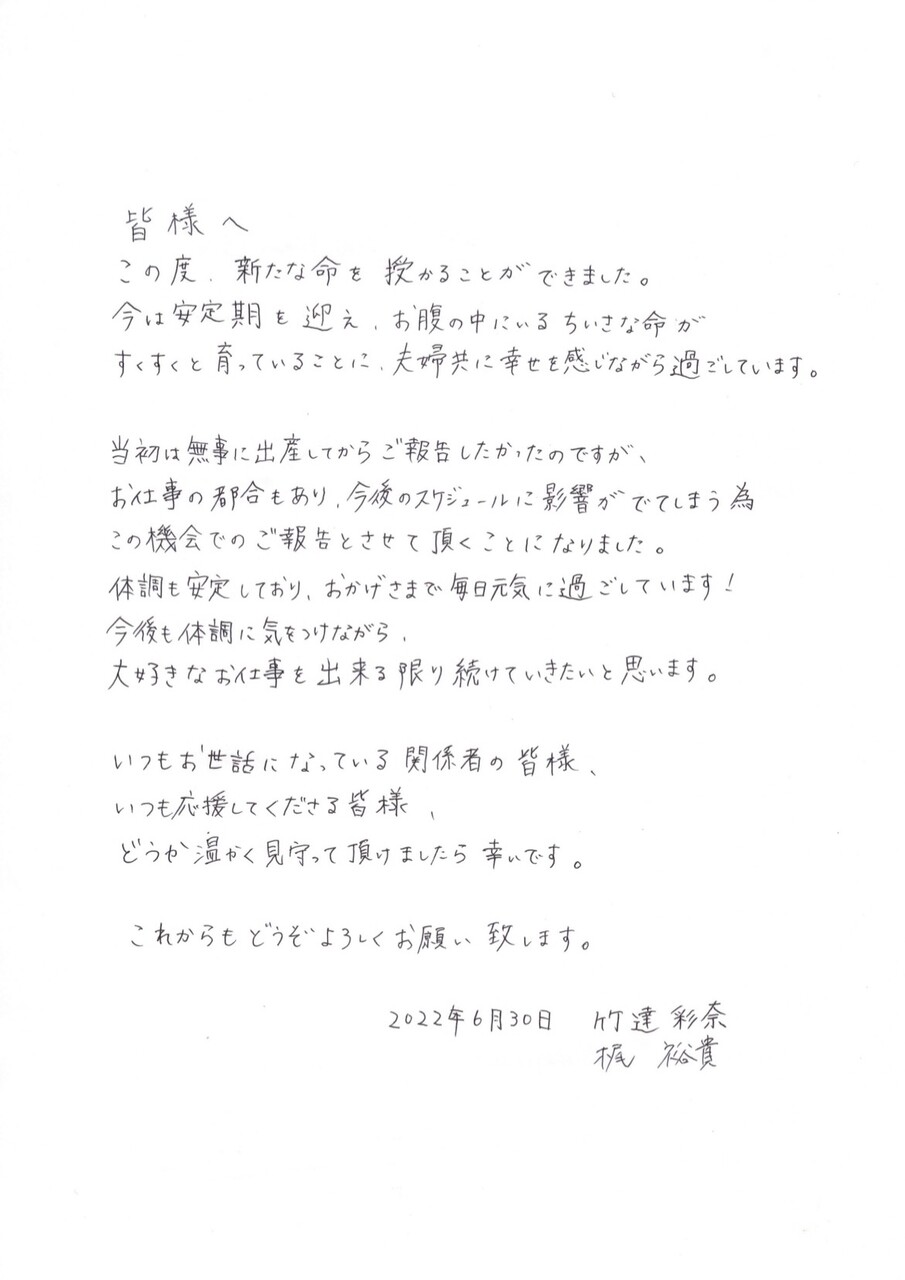 皆様へ
この度、新たな命を授かることができました。
今は安定期を迎え、お腹の中にいるちいさな命が
すくすくと育っていることに、夫婦共に幸せを感じながら過ごしています。
当初は無事に出産してからご報告したかったのですが、
お仕事の都合もあり、今後のスケジュールに影響がでてしまう為
この機会でのご報告とさせて頂くことになりました。
体調も安定しており、おかげさまで毎日元気に過ごしています!
今後も体調に気をつけながら、
大好きなお仕事を出来る限り続けていきたいと思います。
いつもお世話になっている関係者の皆様、
いつも応援してくださる皆様、
どうか温かく見守って頂けましたら幸いです。
これからもどうぞよろしくお願い致します。
2022年6月30日 竹達彩奈
梶裕貴